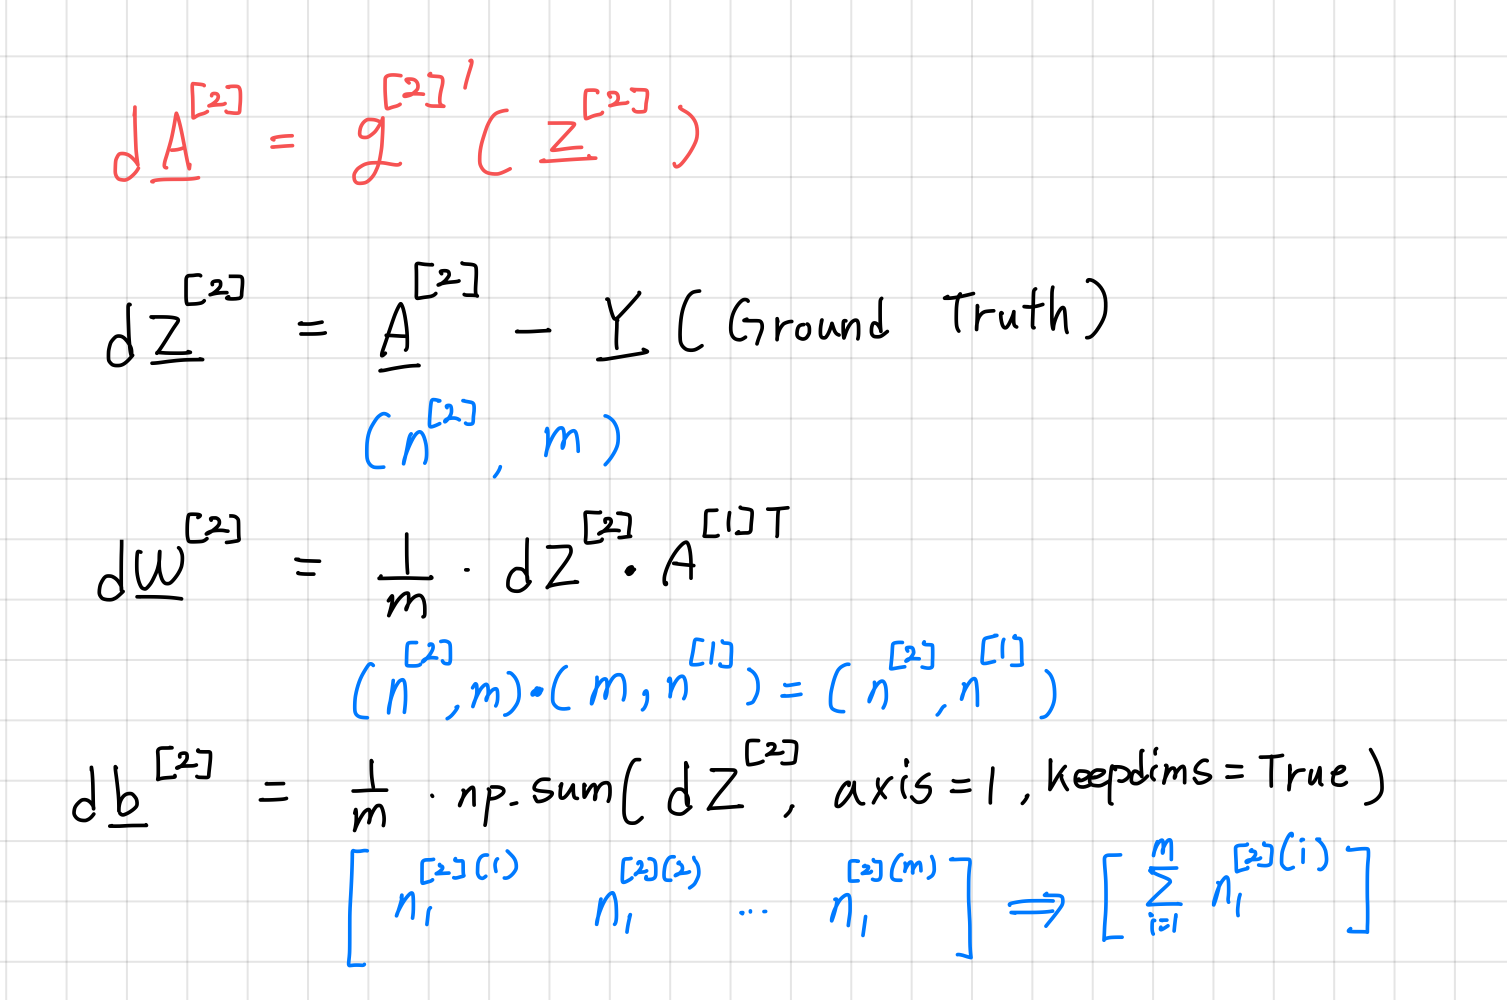 dA^[2] = g^[2]'(Z^[2])
dZ^[2] = A^[2] - Y (Ground Truth)
(n^[2], m)
dW^[2] = 1/m · dZ^[2] · A^[1]T
(n^[2], m)·(m, n^[1]) = (n^[2], n^[1])
db^[2] = 1/m · np.sum(dZ^[2], axis=1, keepdims=True)
[n₁^[2](1) n₁^[2](2) ... n₁^[2](m)] ⇒ [∑_{i=1}^{m} n₁^[2](i)]